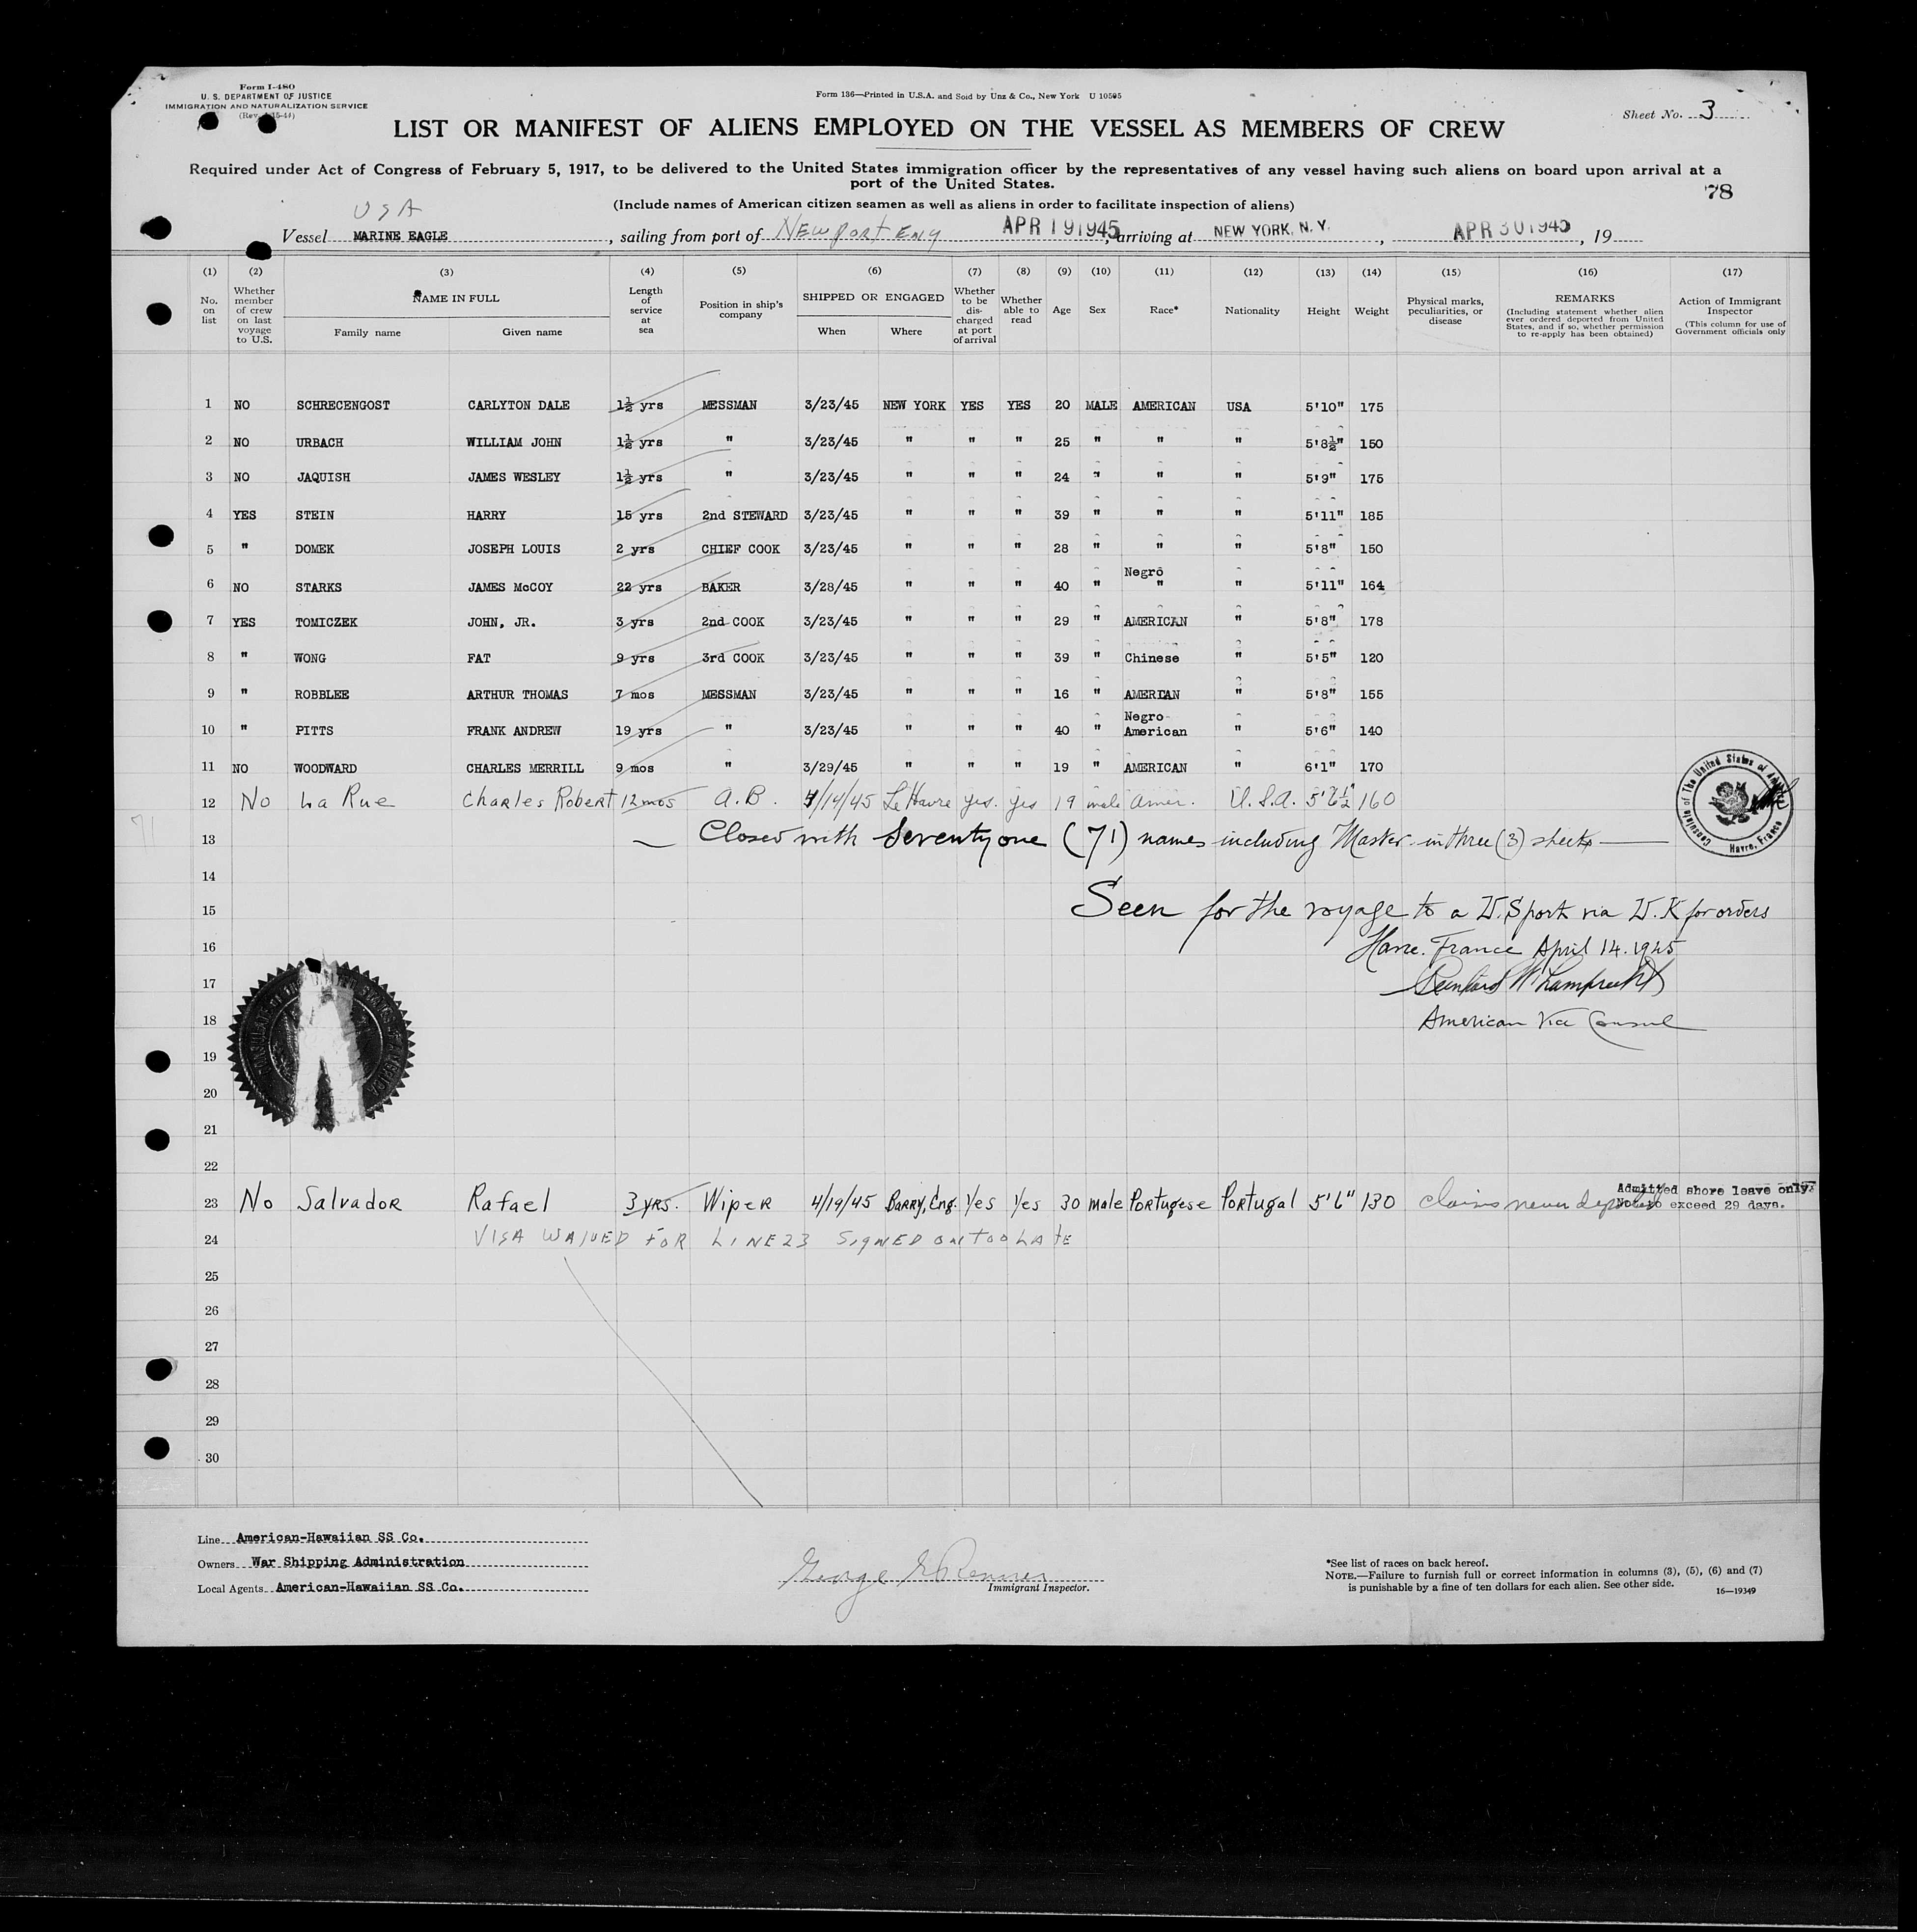 Form I-480
U. S. DEPARTMENT OF JUSTICE
IMMIGRATION AND NATURALIZATION SERVICE
Form 136—Printed in U.S.A. and Sold by Unz & Co., New York U 10595
Sheet No. 3
LIST OR MANIFEST OF ALIENS EMPLOYED ON THE VESSEL AS MEMBERS OF CREW
Required under Act of Congress of February 5, 1917, to be delivered to the United States immigration officer by the representatives of any vessel having such aliens on board upon arrival at a
port of the United States.
78
(Include names of American citizen seamen as well as aliens in order to facilitate inspection of aliens)
USA
Vessel MARINE EAGLE, sailing from port of NEWPORT ENG APR 19 1945, arriving at NEW YORK, N.Y., APR 30 1945, 19
(1) (2) (3) (4) (5) (6) (7) (8) (9) (10) (11) (12) (13) (14) (15) (16) (17)
No. on list
Whether member of crew on last voyage to U.S.
NAME IN FULL
Family name
Given name
Length of service at sea
Position in ship's company
SHIPPED OR ENGAGED
When
Where
Whether to be discharged at port of arrival
Whether able to read
Age
Sex
Race*
Nationality
Height
Weight
Physical marks, peculiarities, or disease
REMARKS
(Including statement whether alien ever ordered deported from United States, and if so, whether permission to re-apply has been obtained)
Action of Immigrant Inspector
(This column for use of Government officials only
1 NO SCHRECENGOST CARLYTON DALE 1½ yrs MESSMAN 3/23/45 NEW YORK YES YES 20 MALE AMERICAN USA 5'10" 175
2 NO URBACH WILLIAM JOHN 1½ yrs " 3/23/45 " " " 25 " " " 5'8½" 150
3 NO JAQUISH JAMES WESLEY 1½ yrs " 3/23/45 " " " 24 " " " 5'9" 175
4 YES STEIN HARRY 15 yrs 2nd STEWARD 3/23/45 " " " 39 " " " 5'11" 185
5 " DOMEK JOSEPH LOUIS 2 yrs CHIEF COOK 3/23/45 " " " 28 " " " 5'8" 150
6 NO STARKS JAMES McCOY 22 yrs BAKER 3/28/45 " " " 40 " Negro " " 5'11" 164
7 YES TOMICZEK JOHN, JR. 3 yrs 2nd COOK 3/23/45 " " " 29 " AMERICAN " 5'8" 178
8 " WONG FAT 9 yrs 3rd COOK 3/23/45 " " " 39 " Chinese " 5'5" 120
9 " ROBBLEE ARTHUR THOMAS 7 mos MESSMAN 3/23/45 " " " 16 " AMERICAN " 5'8" 155
10 " PITTS FRANK ANDREW 19 yrs " 3/23/45 " " " 40 " Negro American " 5'6" 140
11 NO WOODWARD CHARLES MERRILL 9 mos " 3/29/45 " " " 19 " AMERICAN " 6'1" 170
12 No La Rue Charles Robert 12 mos A.B. 4/14/45 Le Havre yes. yes 19 male Amer. U.S.A. 5'6½" 160
71
13 Closed with Seventy one (71) names including Master in three (3) sheets
14
15 Seen for the voyage to a U.S port via U.K for orders
16 Havre. France April 14. 1945
17
18 American Vice Consul
19
20
21
22
23 No Salvador Rafael 3 YRS. Wiper 4/19/45 BARRY, Eng. Yes Yes 30 male Portugese Portugal 5'6" 130 claims never deported Admitted shore leave only. Not to exceed 29 days.
24 VISA WAIVED FOR LINE 23 SIGNED ON TOO LATE
25
26
27
28
29
30
Line American-Hawaiian SS Co.
Owners War Shipping Administration
Local Agents American-Hawaiian SS Co.
George
Immigrant Inspector.
*See list of races on back hereof.
NOTE.—Failure to furnish full or correct information in columns (3), (5), (6) and (7)
is punishable by a fine of ten dollars for each alien. See other side.
16—19349